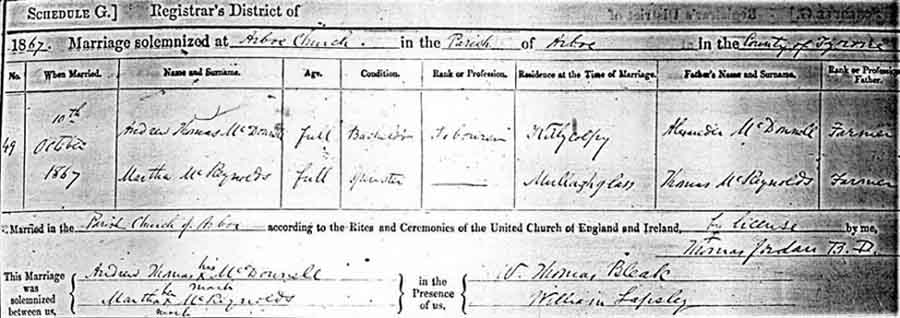 SCHEDULE G.] Registrar's District of
1867. Marriage solemnized at Arboe Church. in the Parish of Arboe in the County of Tyrone
No. When Married. Name and Surname. Age. Condition. Rank or Profession. Residence at the Time of Marriage. Father's Name and Surname. Rank or Profession Father.
49 10th October 1867
Andrew Thomas McDonnell full Bachelor Alexander McDonnell Farmer
Martha McReynolds full Spinster Mullaghglass Thomas McReynolds Farmer
Married in the Parish Church of Arboe according to the Rites and Ceremonies of the United Church of England and Ireland, by license by me,
Thomas Jordan B.D.
This Marriage was solemnized between us,
Andrew Thomas his mark McDonnell
Martha her mark McReynolds
in the Presence of us.
W. Thomas Bleak
William Lapsley